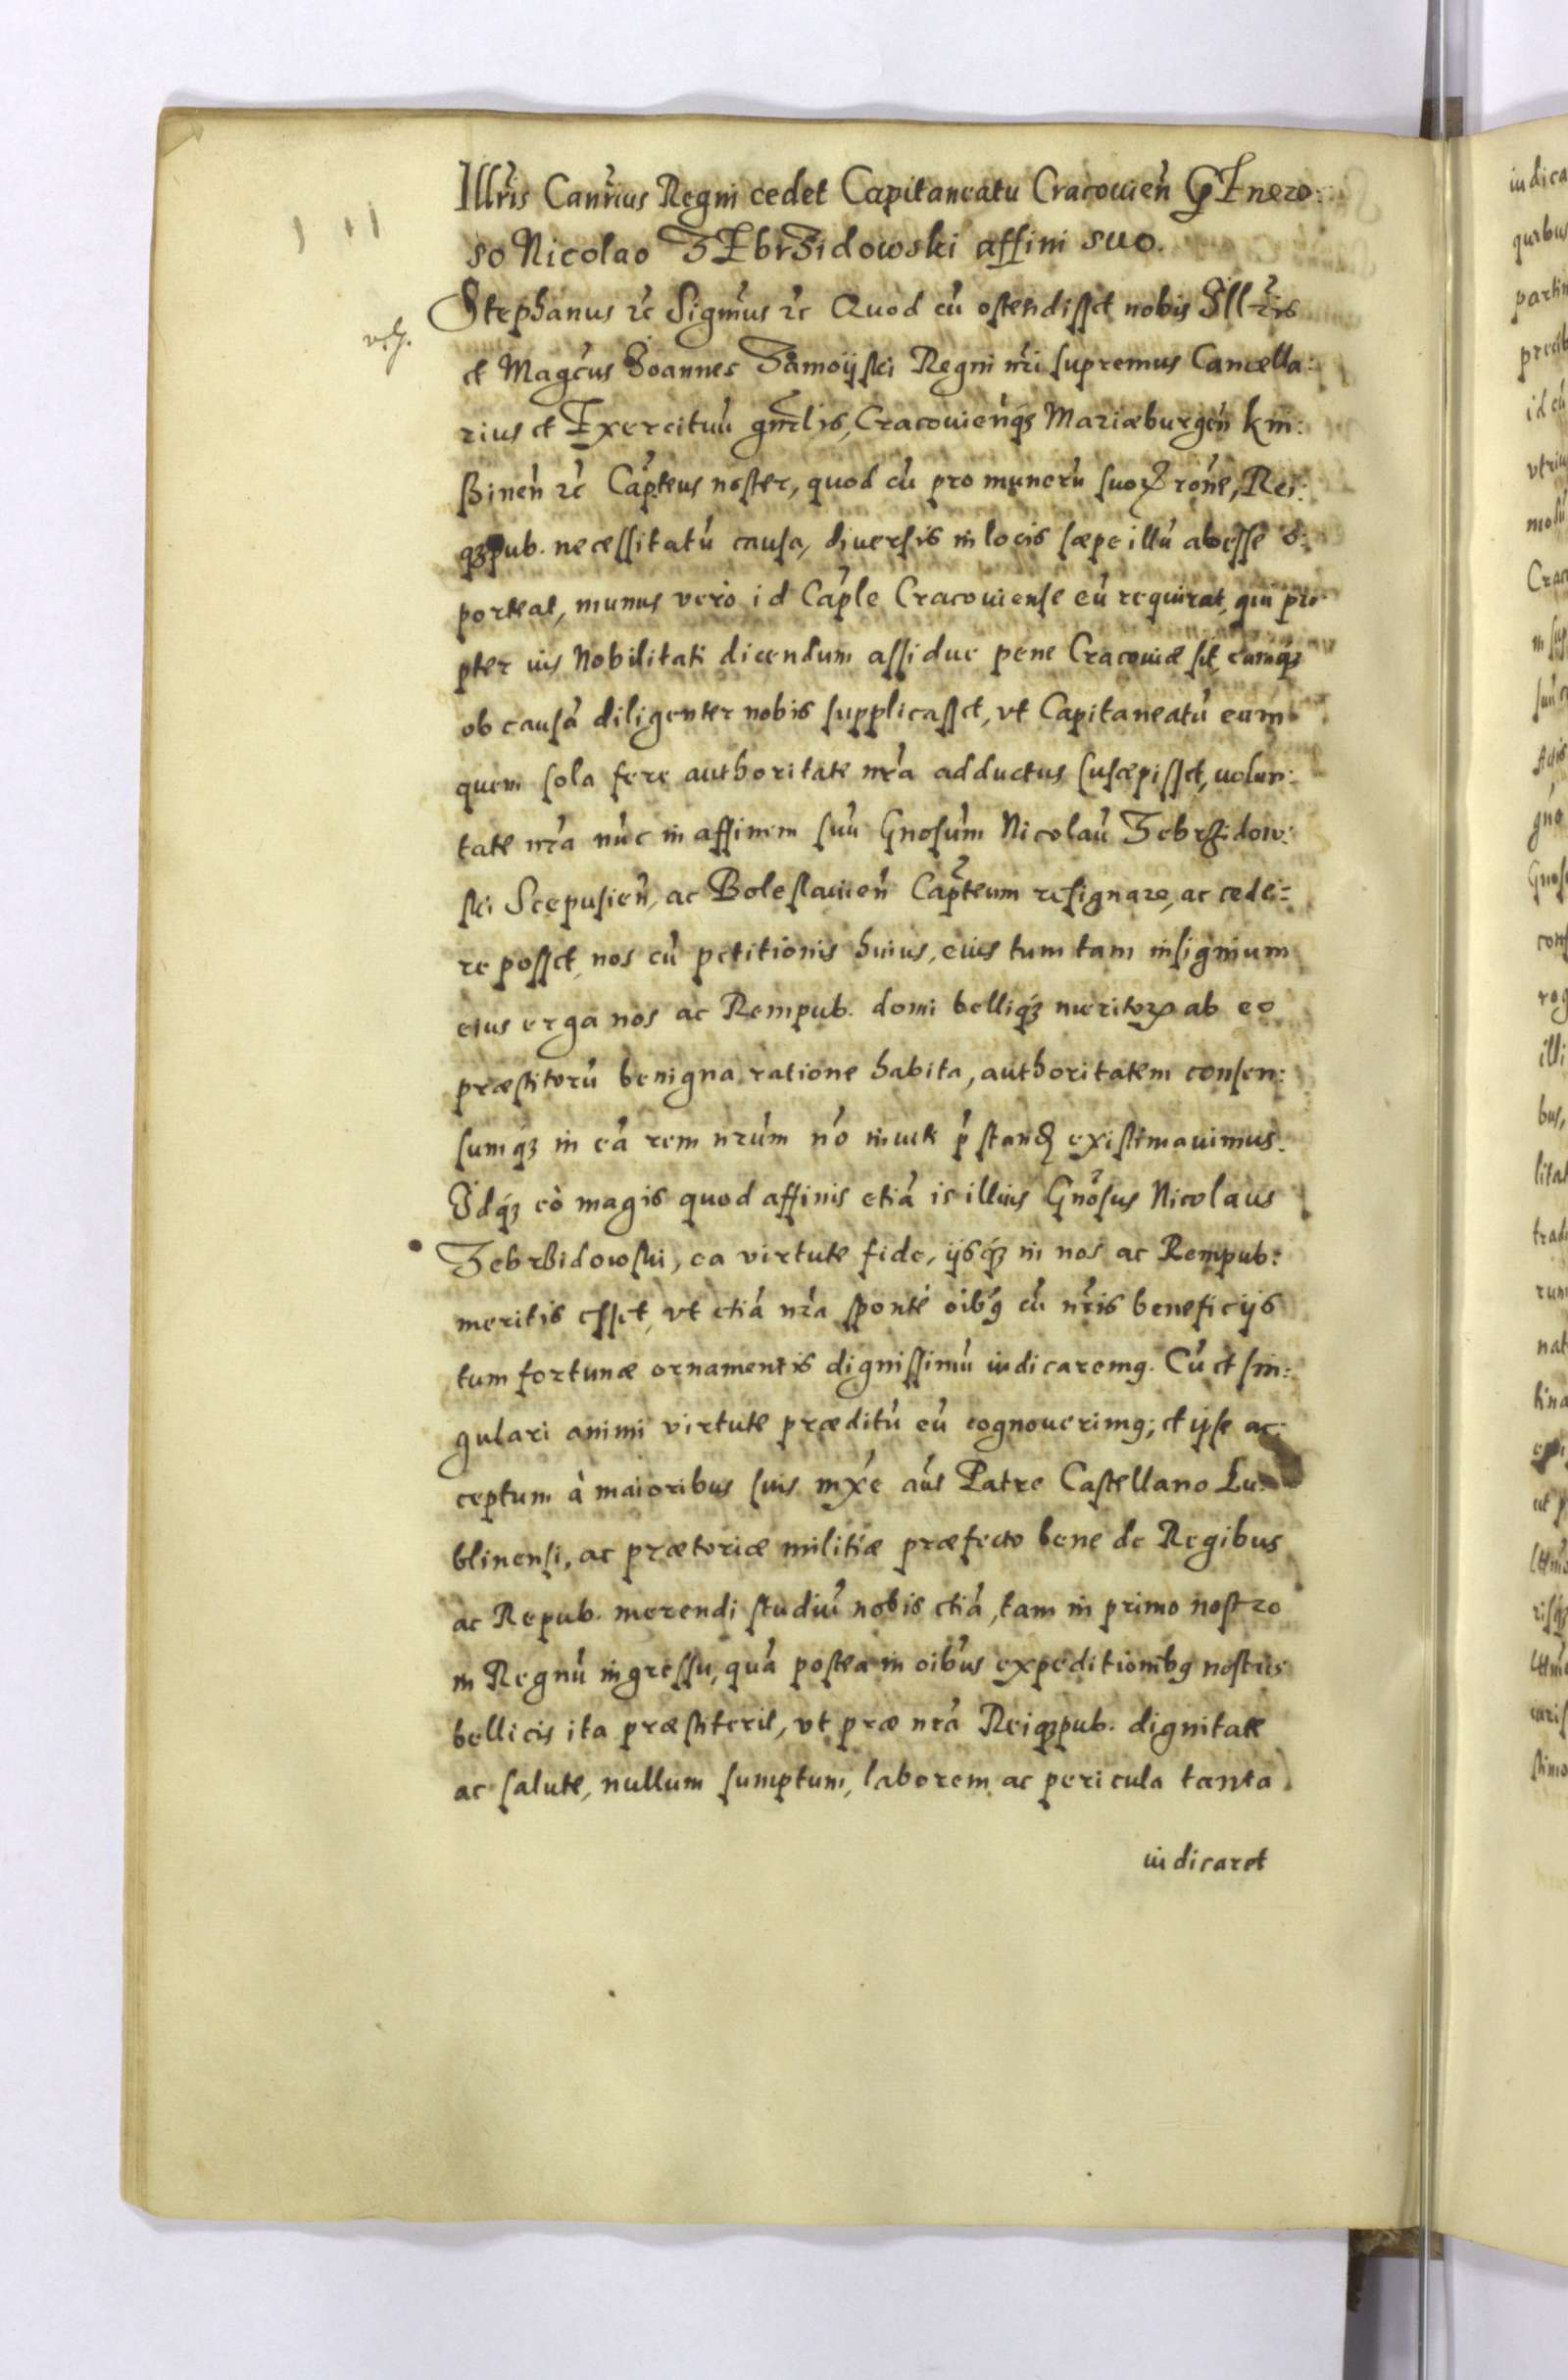 Illris Canrius Regni cedet Capitaneatu Cracovien̄ GEnero:
so Nicolao ZEbrZidowski affini suo.
Stephanus etc Sigmus etc Quod cū ostendisset nobis Illris
et Magcus Joannes Zamoyski Regni nri supremus Cancella:
rius et Exercituū gnrlis, Cracovienq; Mariæburgen̄ kni:
ßinen̄ etc Capteus noster, quod cū pro munerū suoꝝ rōne, Rei:
q; pub. necessitatū causa, diversis in locis sæpe illū abesse o:
porteat, munus verò id Caple Cracoviense eū requirat, qui pro
pter ius Nobilitati dicendum assidue pene Cracoviæ sit, eamq;
ob causā diligenter nobis supplicasset, vt Capitaneatū eum
quem sola fere authoritate nra adductus suscepisset, volun:
tate nra nūc in affinem suū Gnosum Nicolaū Zebrzidow:
ski Scepusien, ac Boleslavien̄ Capteum resignare, ac cede:
re posset, nos cū petitionis huius, eius tum tam insignium
eius erga nos ac Rempub. domi belliq; meritoꝝ ab eo
præstitorū benigna ratione habita, authoritatem consen:
sumq; in eā rem nrūm nō invite pstand existimavimus.
Idq; eò magis quod affinis etiā is illius Gnōsus Nicolaus
Zebrßidowski, ea virtute fide, ijsq; in nos ac Rempub:
meritis esset, vt etiā nra sponte oibꝯ cū nris beneficijs
tum fortunæ ornamentis dignissimū iudicaremꝯ. Cū et sin:
gulari animi virtute præditū eū cognoverimꝯ; et ipse ac
ceptum à maioribus suis mxe aūs Patre Castellano Lu:
blinensi, ac prætoriæ militiæ præfecto bene de Regibus
ac Repub. merendi studiū nobis etiā, tam in primo nostro
in Regnū ingressu, quā postea in oibus expeditionibꝯ nostris
bellicis ita præstiterit, vt præ nrā Reiq; pub. dignitate
ac salute, nullum sumptum, laborem ac pericula tanta
iudicaret